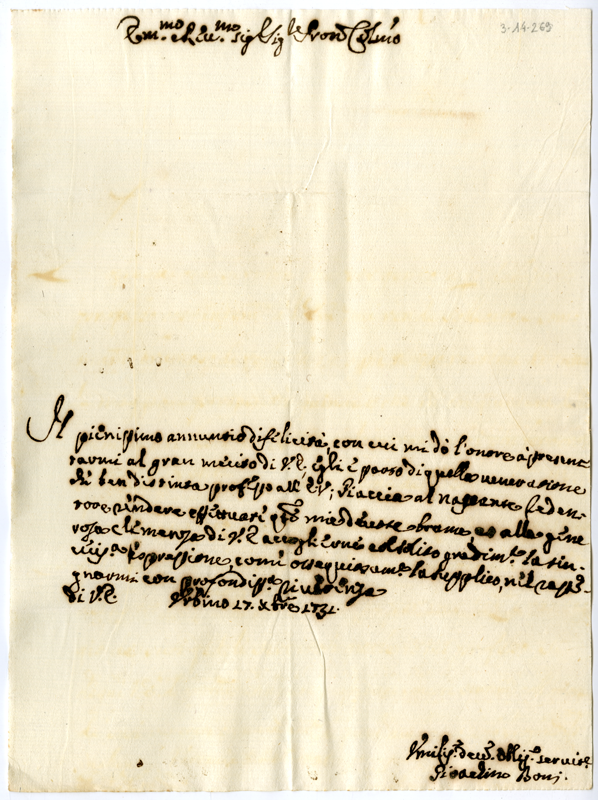 Em.mo e Rev.mo Sig.r Sig.r e Pron Colmo
3-14-269
Il pienissimo annuntio di felicità, con cui mi dò l'onore di presen
tarmi al gran merito di V.E., egli è parto di quella venerazione
di ben distinta professo all' E.V.; Piaccia al nascente Reden
tore rendere effettuati q.te mie devote brame, et alla gene
rosa clemenza di V.E. accoglierne col solito gradim.to la sin
cera espressione, come ossequiosam.te la supplico, nel rasse
gnarmi con profondiss.a riverenza
Di V.E. Urbino 17. Xbre 1731.
Umiliss.o dev.o Obblig.o servit.e
Gioachino Boni.